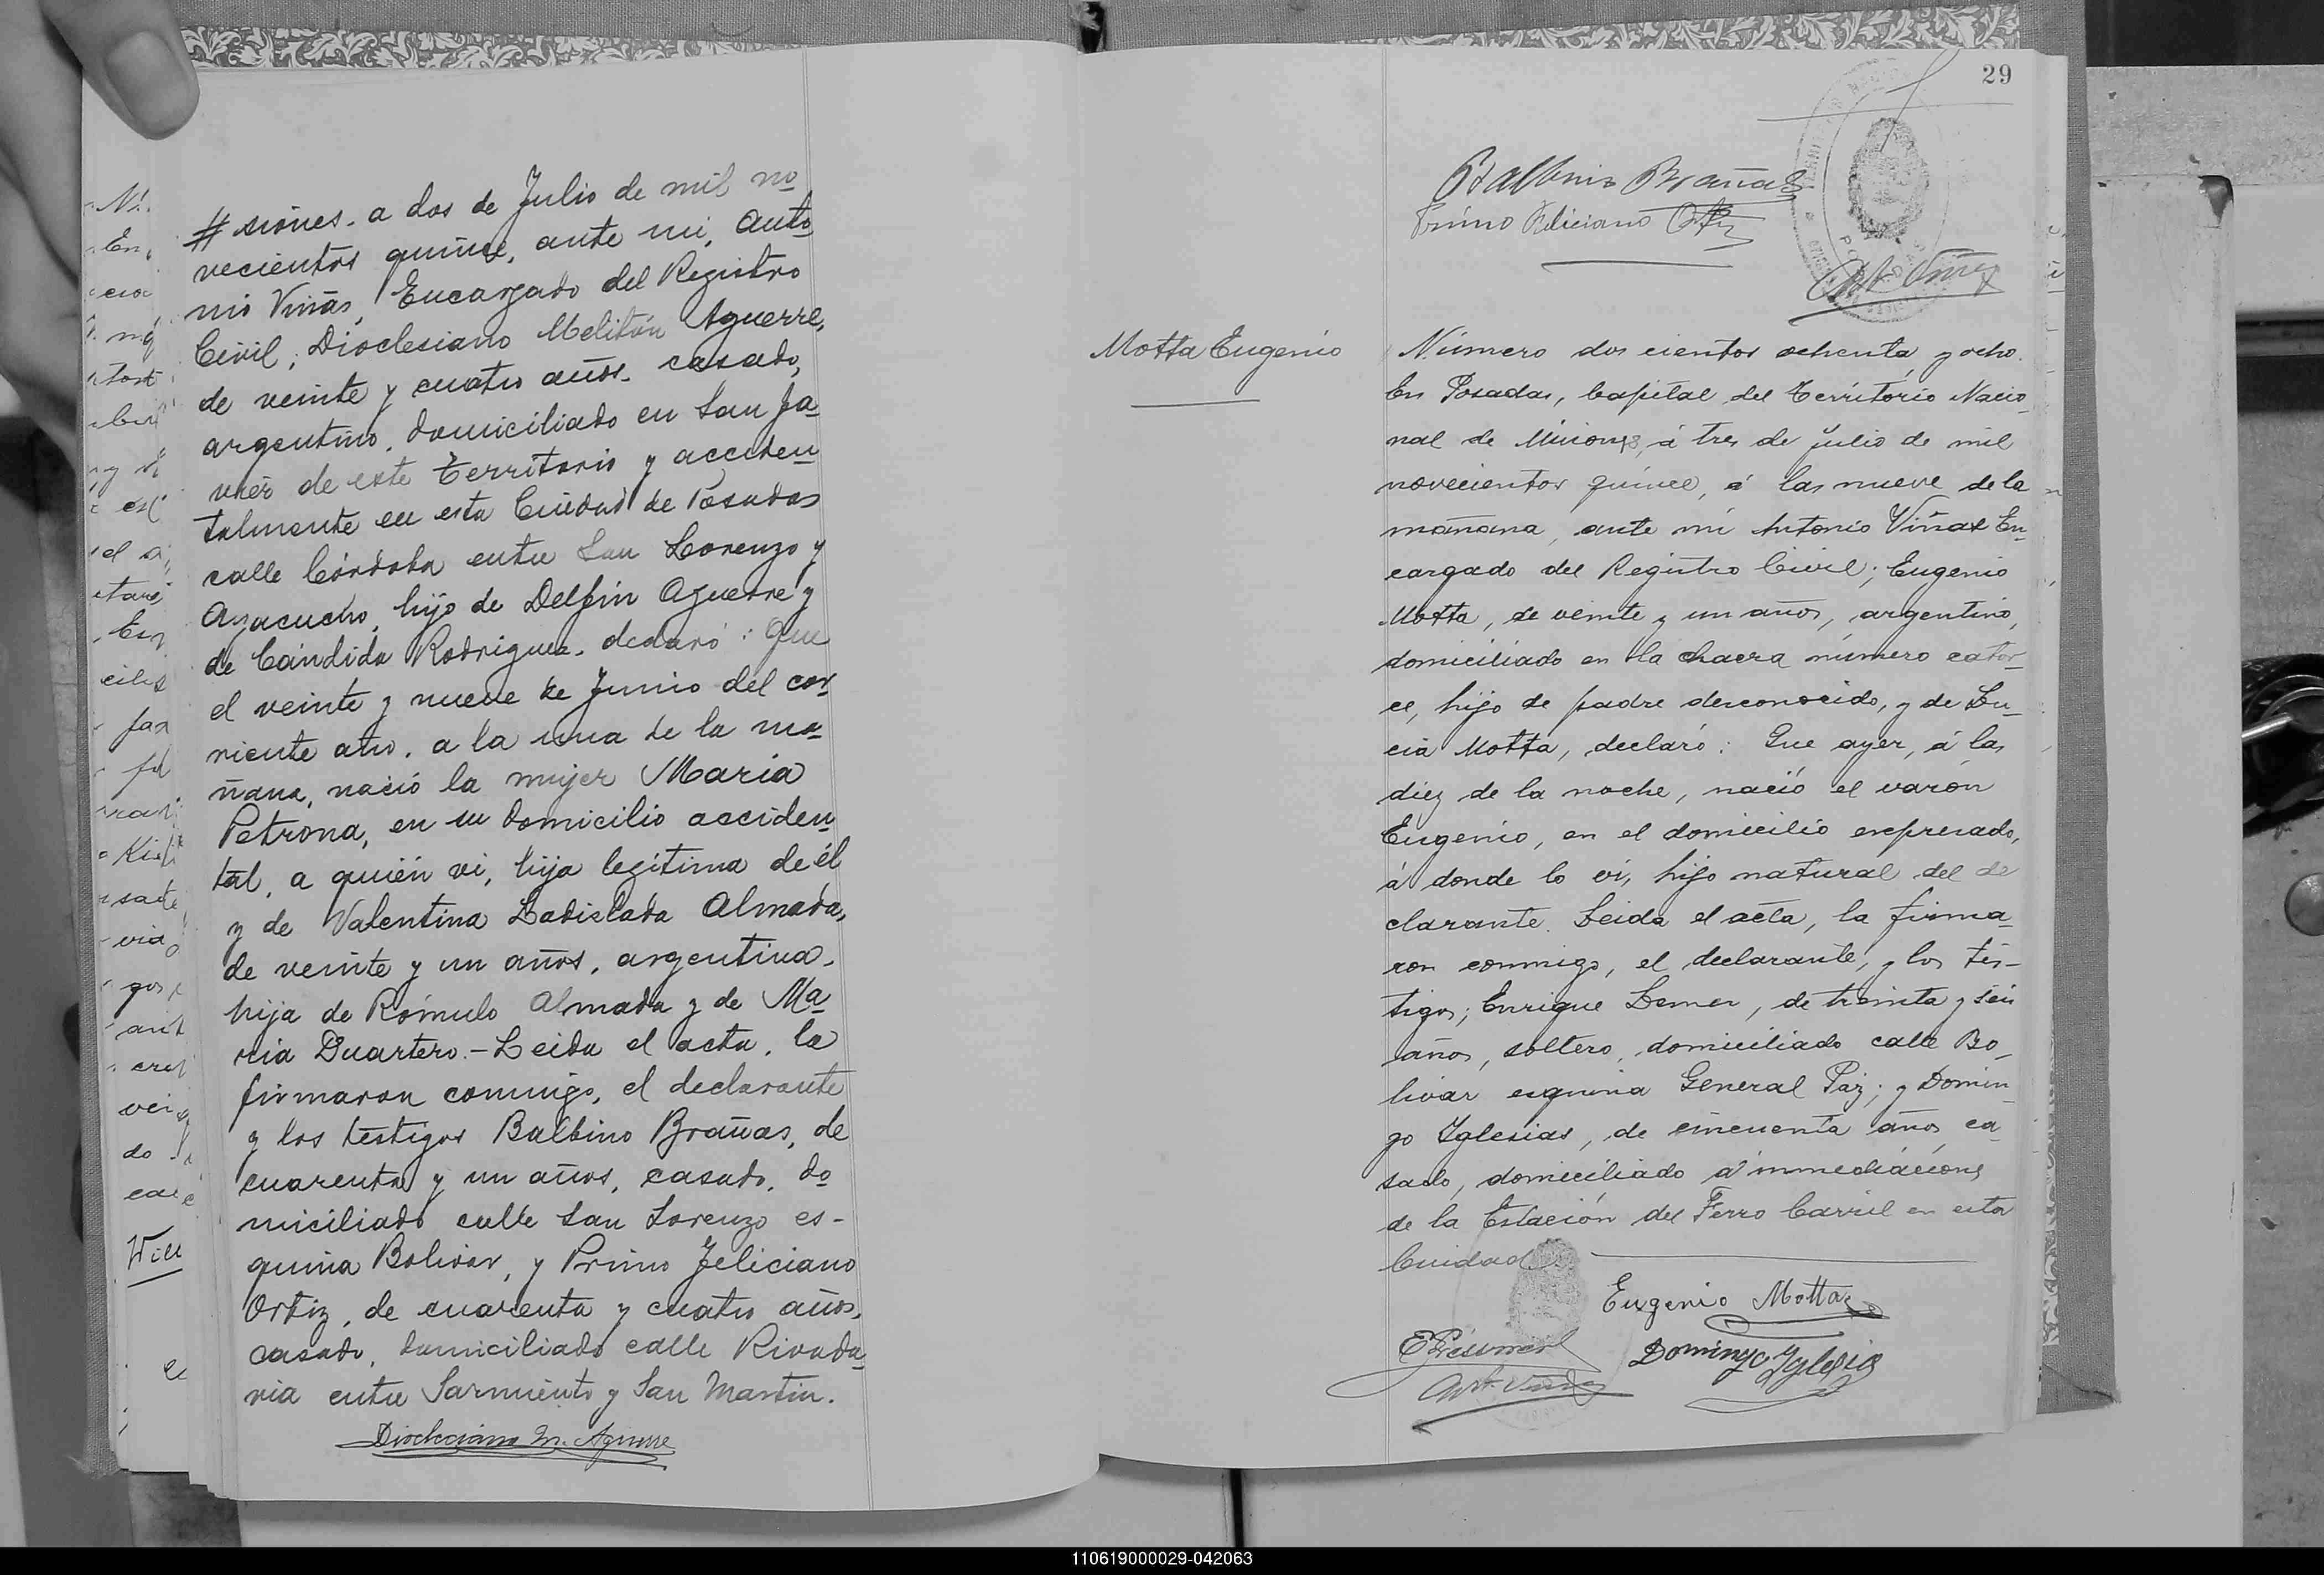 # siones. a dos de Julio de mil no
vecientos quince, ante mi, Anto
nio Viñas, Encargado del Registro
Civil; Dioclesiano Melitón Aguerre,
de veinte y cuatro años. casado,
argentino, domiciliado en San Ja
vier de este Territorio y acciden
talmente en esta Ciudad de Posadas
calle Córdoba entre San Lorenzo y
Ayacucho, hijo de Delfin Aguerre y
de Cándida Rodriguez. declaró: Que
el veinte y nueve de Junio del cor
riente año. a la una de la ma
ñana, nació la mujer Maria
Petrona, en su domicilio acciden
tal, a quién vi, hija legitima de él
y de Valentina Ladislada Almada,
de veinte y un años, argentina,
hija de Rómulo Almada y de Ma
ria Duartero.-Leida el acta, la
firmaron conmigo, el declarante
y los testigos Balbino Brañas, de
cuarenta y un años, casado, do
miciliado calle San Lorenzo es-
quina Bolivar, y Primo Feliciano
Ortiz, de cuarenta y cuatro años,
casado, domiciliado calle Rivada
via entre Sarmiento y San Martin.
Diocleciano M. Aguerre
29
Balbino Brañas
Primo Feliciano Ortiz
Ant. Viñas
Motta Eugenio
Número dos cientos ochenta y ocho.
En Posadas, Capital del Territorio Nacio
nal de Misiones, á tres de Julio de mil
novecientos quince, á las nueve de la
mañana, ante mi Antonio Viñas En
cargado del Registro Civil; Eugenio
Motta, de veinte y un años, argentino,
domiciliado en la chacra número cator
ce, hijo de padre desconocido, y de Lu
cia Motta, declaró: Que ayer, á las
diez de la noche, nació el varón
Eugenio, en el domicilio expresado,
á donde lo vi, hijo natural del de
clarante. Leida el acta, la firma
ron conmigo, el declarante, y los tes-
tigos; Enrique de treinta y seis
años, soltero, domiciliado calle Bo
livar esquina General Paz; y Domin
go Yglesias, de cincuenta años ca
sado, domiciliado á inmediaciones
de la Estación del Ferro Carril en esta
Ciudad
Eugenio Motta
Domingo Yglesias
Ant. Viñas
110619000029-042063